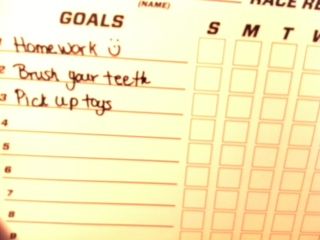 (NAME)
RACE RE
GOALS S M T W
1 Homework
2 Brush your teeth
3 Pick up toys
4
5
6
7
8
9